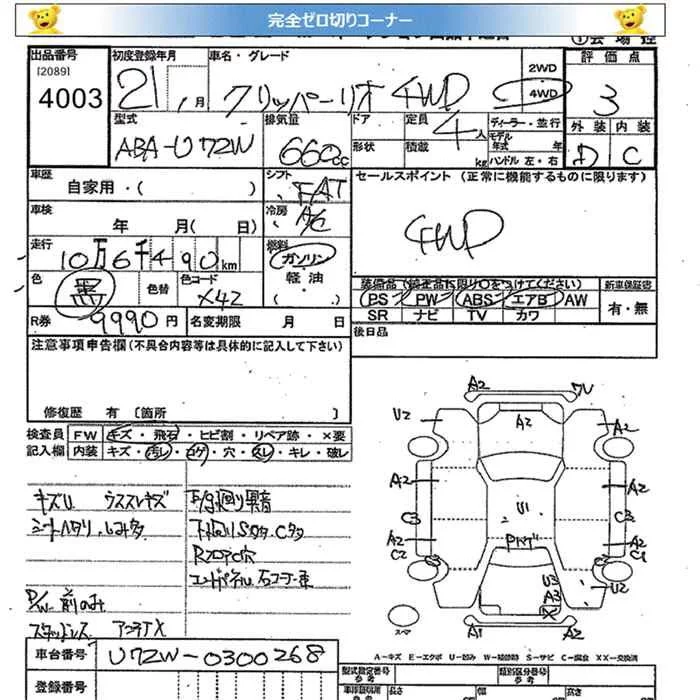 完全ゼロ切りコーナー
出品番号
[2089]
4003
初度登録年月
21年 月
車名・グレード
クリッパーリオ 4WD
2WD
4WD
評価点
3
型式
ABA-U72W
排気量
660cc
ドア
形状
定員
4人
積載
kg
ディーラー・並行
モデル
年式 年
ハンドル 左・右
外装 内装
D C
車歴
自家用・( )
シフト
FAT
セールスポイント (正常に機能するものに限ります)
4WD
車検
年 月( 日)
冷房
A/C
走行
10万6千490km
燃料
ガソリン
軽油
・( )
色
黒
色替
色コード
X42
装備品
PS PW ABS エアB AW
SR ナビ TV カワ
新車保証書
有・無
R券
9990円
名変期限 月 日
後日品
注意事項申告欄 (不具合内容等は具体的に記入して下さい)
修復歴 有 [箇所 ]
検査員
記入欄
FW キズ・飛石・ヒビ割・リペア跡・×要
内装 キズ・汚レ・コゲ・穴・スレ・キレ・破レ
キズU ウススレキズ
シートヘタリ、しみ多
P/W 前のみ
スタッドレス アンテナX
下回りSタタ Cタタ
A2 A2
U2 A2 A2
A2 A2
C3 U1 C3
A2 A2
C2 C1
U3 U2
A3
X
A1 A2
スペア
A-キズ E-エクボ U-凹み W-補修跡 S-サビ C-腐食 XX-交換済
車台番号
U72W-0300268
登録番号
型式指定番号
参考
類別区分番号
参考
長さ 幅 高さ